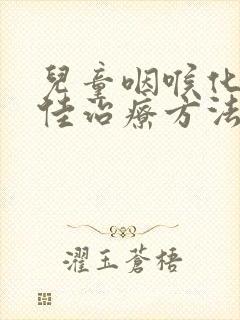 兒童咽喉化
佳治療方法
濯玉蒼梧